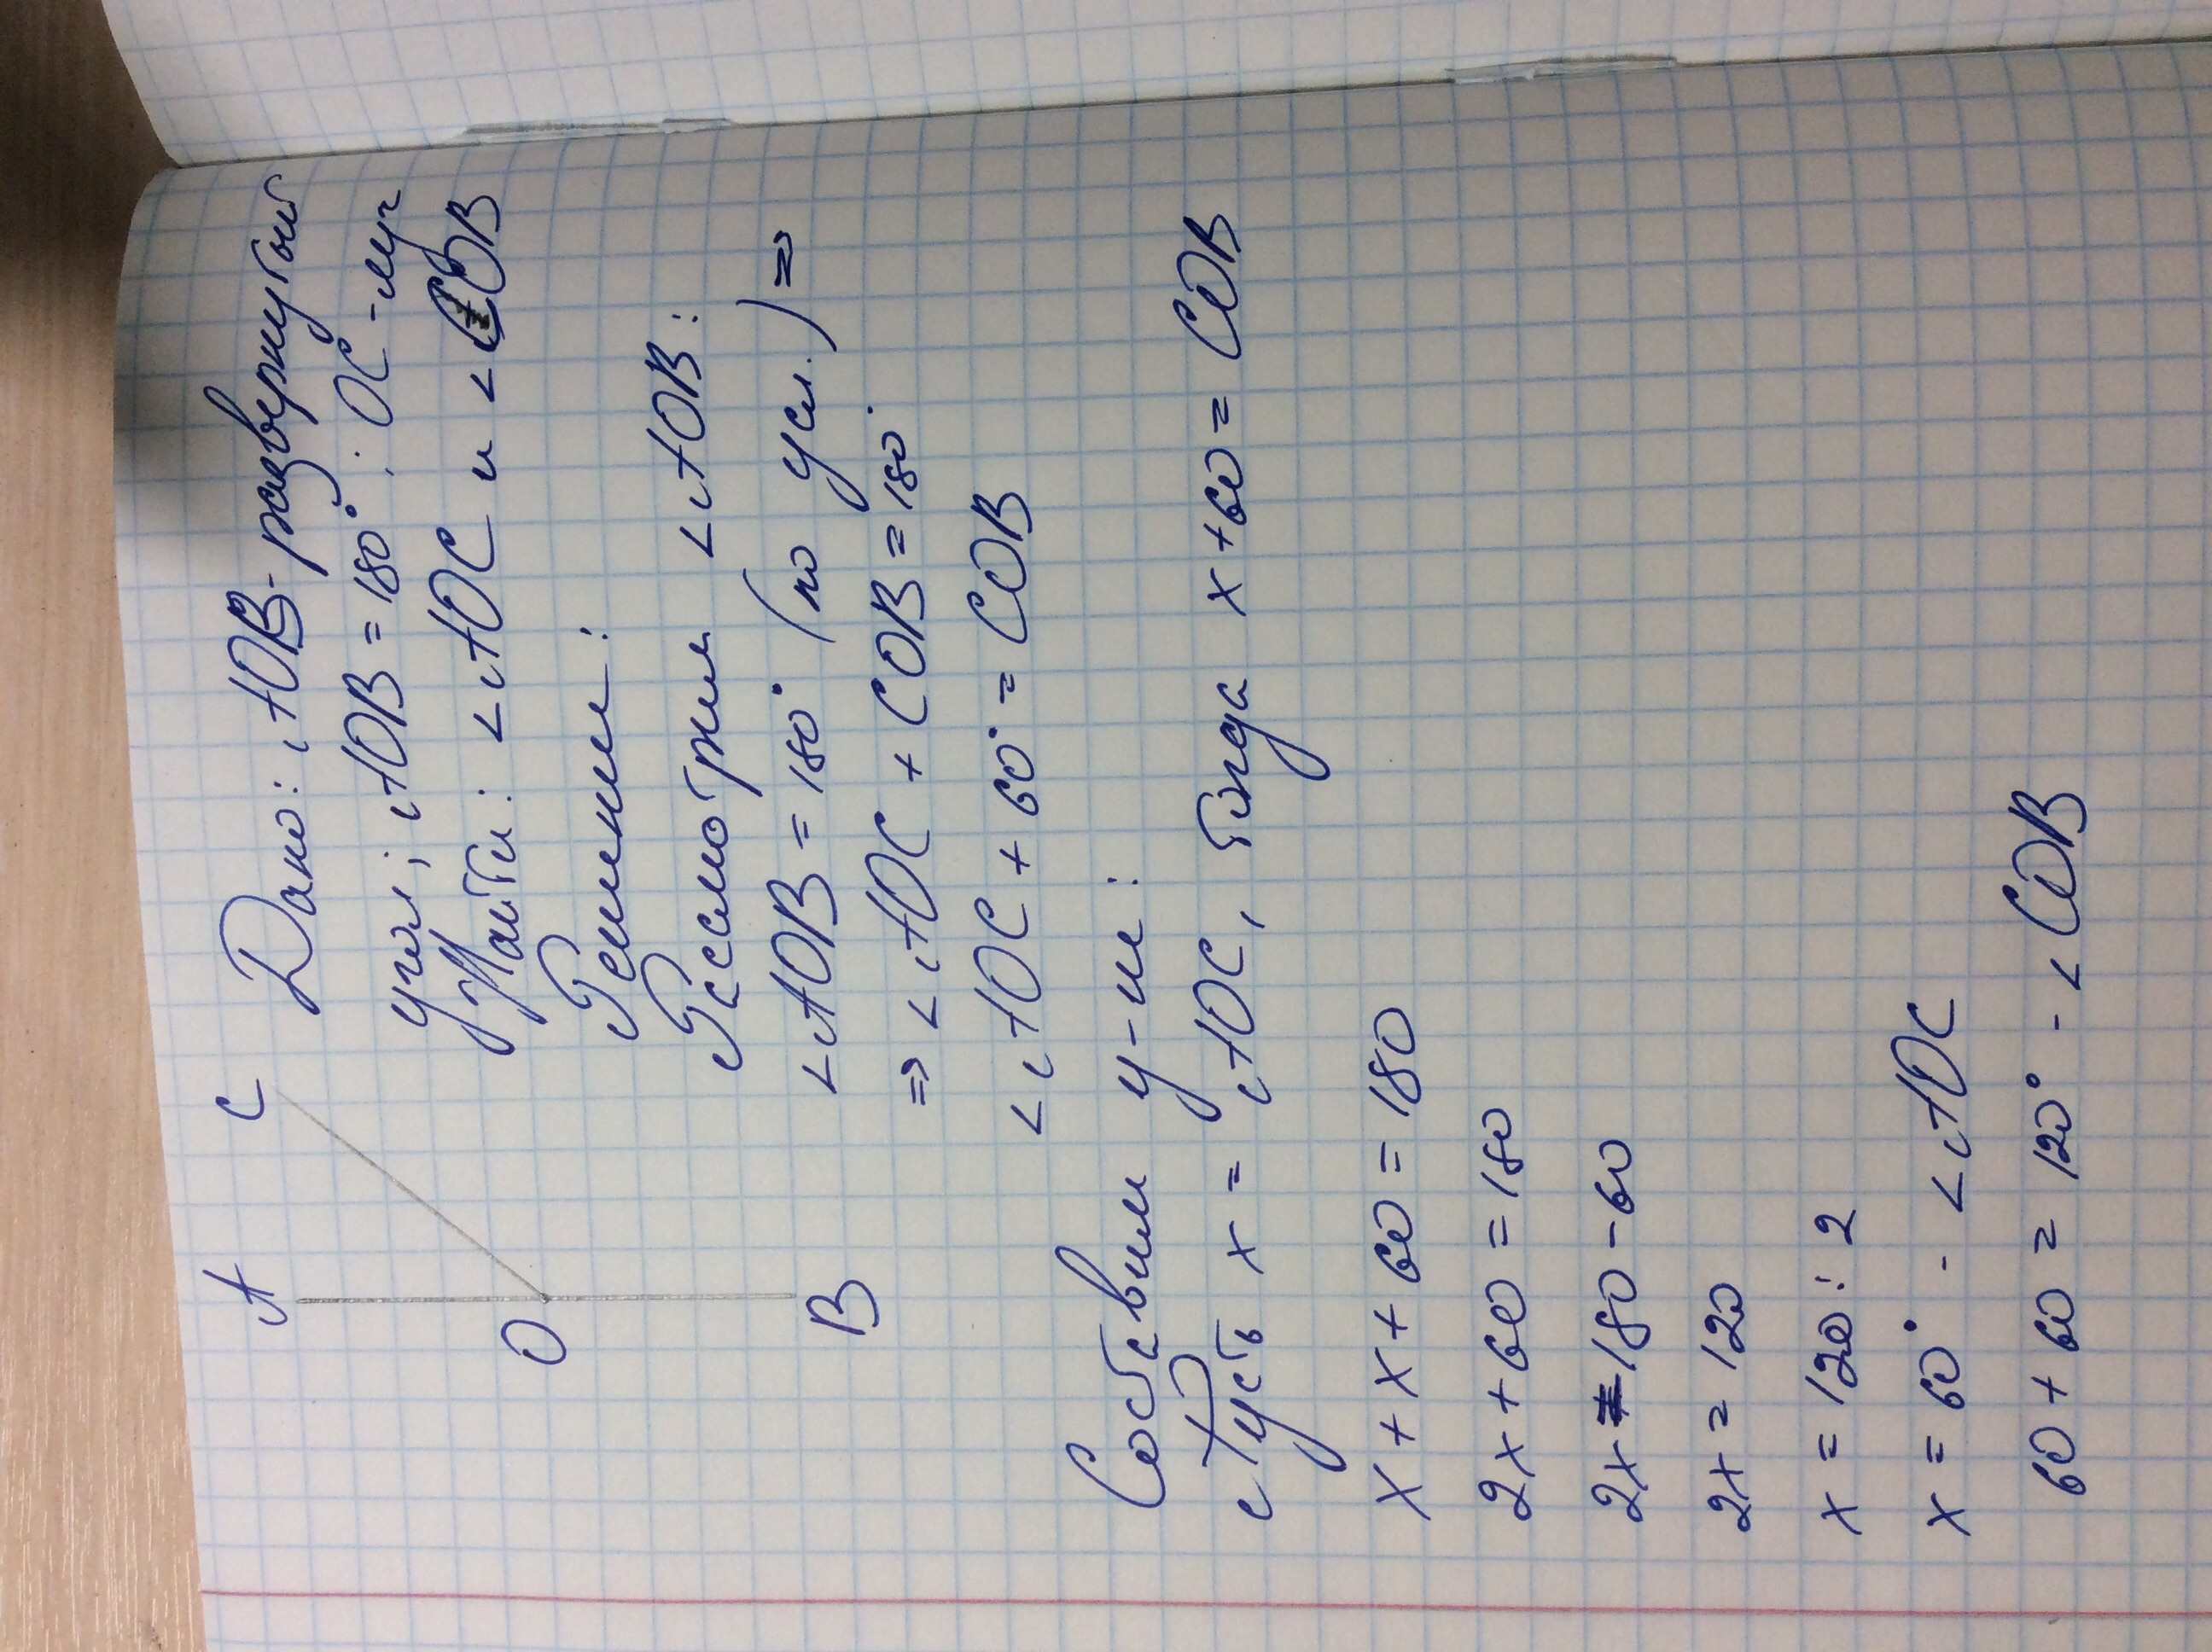 A
C
O
B
Дано: AOB - развернутый
угол; AOB = 180°; OC - луч
Найти: ∠AOC и ∠COB
Решение:
Рссмотрим ∠AOB:
∠AOB = 180° (по усл.) ⇒
⇒ ∠AOC + COB = 180°
∠AOC + 60° = COB
Составим у-ие:
Пусть x = AOC, тогда x + 60 = COB
x + x + 60 = 180
2x + 60 = 180
2x = 180 - 60
2x = 120
x = 120 : 2
x = 60° - ∠AOC
60 + 60 = 120° - ∠COB